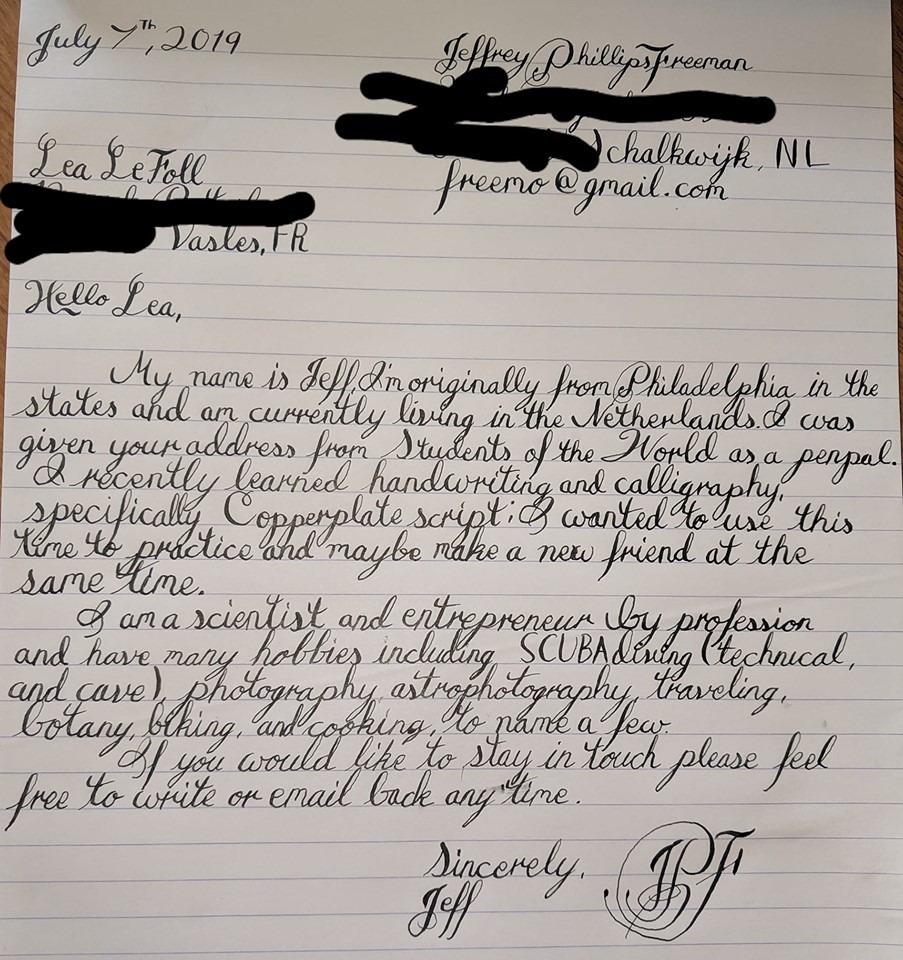 July 7th, 2019
Jeffrey Phillips Freeman
Schalkwijk, NL
freemo@gmail.com
Lea LeFoll
Vasles, FR
Hello Lea,
My name is Jeff, I'm originally from Philadelphia in the
states and am currently living in the Netherlands. I was
given your address from Students of the World as a penpal.
I recently learned handwriting and calligraphy,
specifically Copperplate script; I wanted to use this
time to practice and maybe make a new friend at the
same time.
I am a scientist and entrepreneur by profession
and have many hobbies including SCUBA diving (technical,
and cave), photography, astrophotography, traveling,
botany, biking, and cooking, to name a few.
If you would like to stay in touch please feel
free to write or email back any time.
Sincerely,
Jeff
JPF